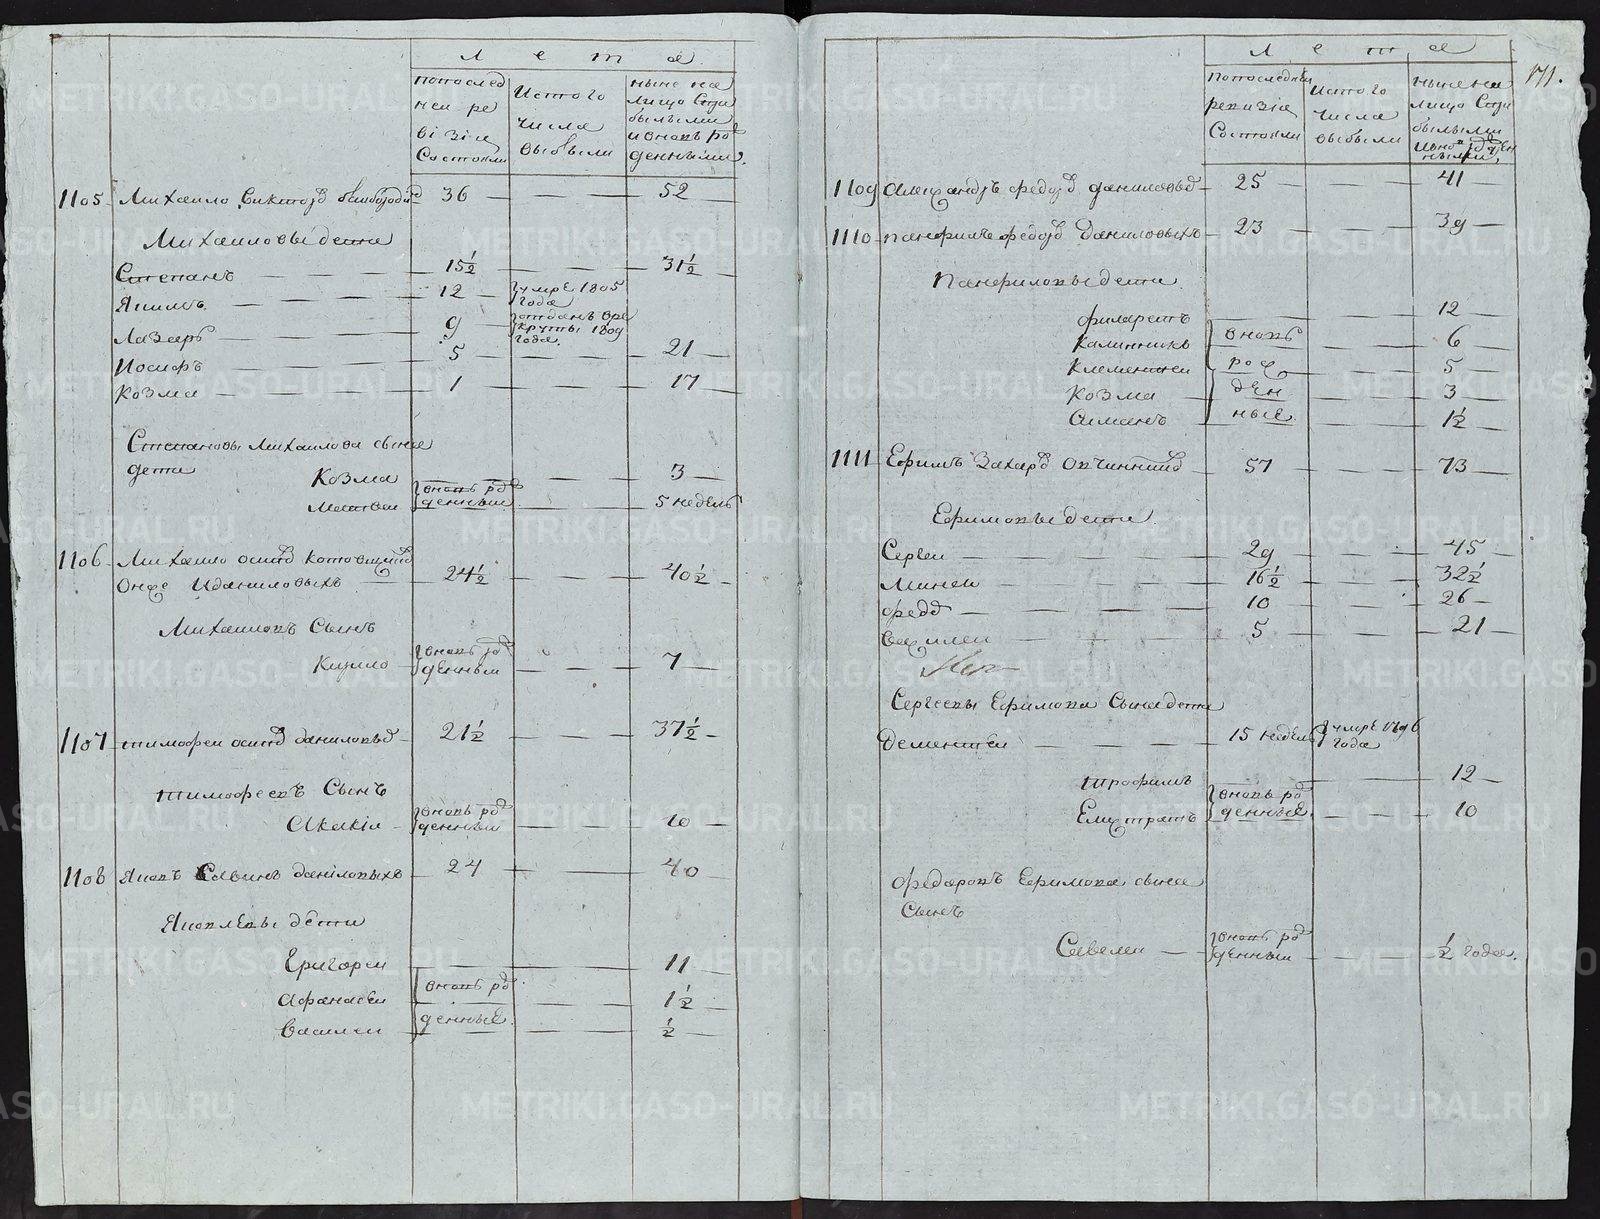 Лета
по последней ревізіи состояли
Ис того числа выбыли
ныне на лицо с прибылыми и вновь рожденными
1105 Михаило Викторов 36 — — 52
Михаиловы дети
Степанъ — — 15½ — — 31½
Якимъ — 12 — умре 1805 года
Лазарь — 9 — отданъ в рекруты 1809 года
Иосифъ — 5 — — 21
Козма — 1 — — 17
Степановы Михаилова сына
дети
Козма — — 3
Матвеи вновь рожденныи — — 5 недель
1106 Михаило Осипов
Онже и Даниловыхъ — 24½ — — 40½
Михаиловъ Сынъ
Кирило вновь рожденныи — — 7
1107 тимофеи осипов даниловых 21½ — — 37½
тимофеевъ Сынъ
Акакія вновь рожденныи — — 10
1108 Яковъ Савинъ данiловыхъ 24 — — 40
Яковлевы дети
Григореи — — 11
Афанасеи вновь рожденные — — 1½
Василеи — — ½
Лета
171.
по последней ревизiи состояли
Ис того числа выбыли
ныне на лицо с прибылыми и вновь рожденными
1109 Александръ федоров даниловых 25 — — 41
1110 панфилъ федоров Даниловыхъ 23 — — 39
Панфиловы дети
филаретъ — — 12
Калинникъ вновь — — 6
Клементеи рож — — 5
Козма ден — — 3
Симанъ ные — — 1½
1111 Ефимъ Захаров Овчинников 57 — — 73
Ефимовы дети
Сергеи — — 29 — — 45
Минеи — — 16½ — — 32½
федор — — 10 — — 26
василеи — — 5 — — 21
Сергеевы Ефимова Сына дети
Дементеи — — 15 недель умре 1796 года
трофимъ — — 12
Евстратъ вновь рожденные — — 10
федоровъ Ефимова сына
Сынъ
Савелеи — вновь рожденныи — — ½ года.
METRIKI.GASO-URAL.RU